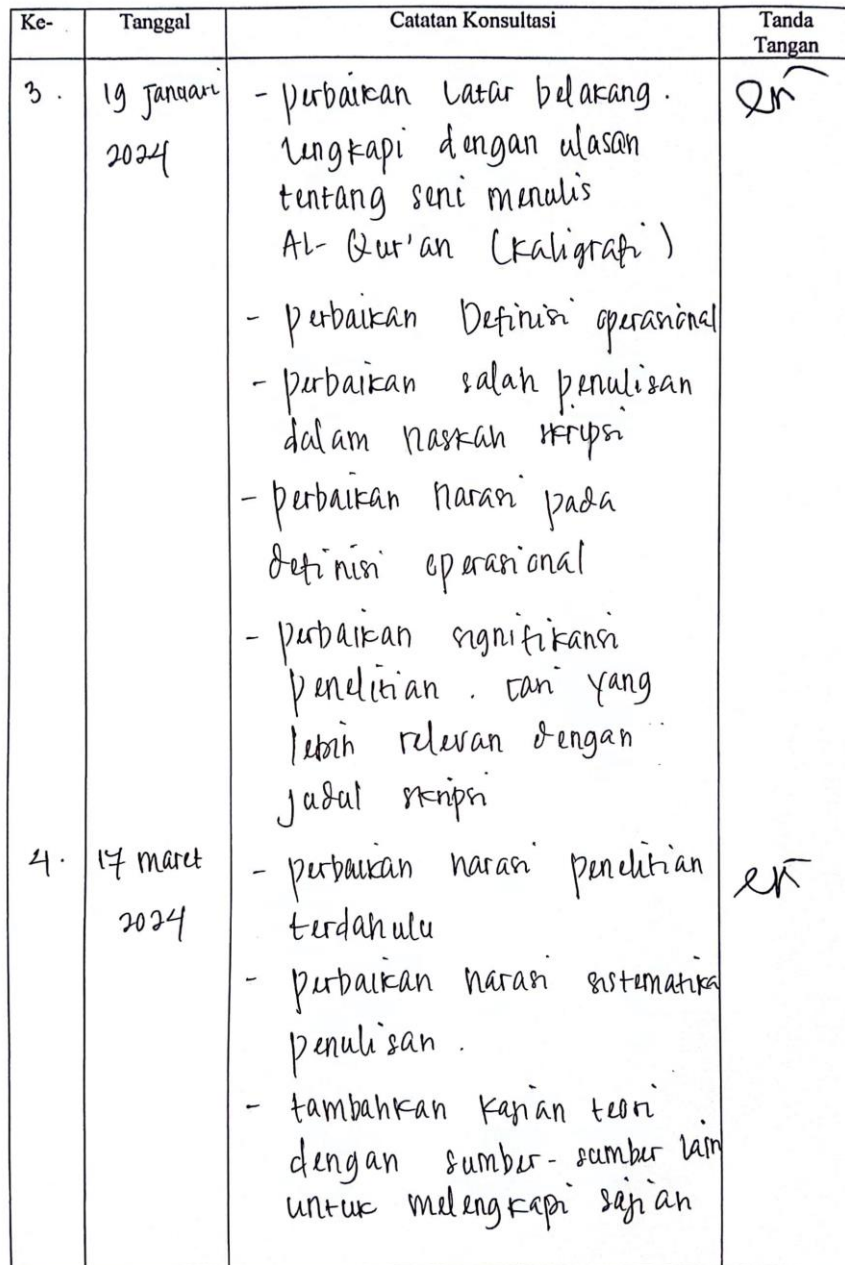 Ke- Tanggal Catatan Konsultasi Tanda Tangan
3. 19 Januari 2024
- perbaikan Latar belakang.
lengkapi dengan ulasan
tentang seni menulis
Al-Qur'an (Kaligrafi)
- perbaikan Definisi operasional
- perbaikan salah penulisan
dalam naskah skripsi
- perbaikan narasi pada
definisi operasional
- perbaikan signifikansi
penelitian. cari yang
lebih relevan dengan
judul skripsi
4. 17 maret 2024
- perbaikan narasi penelitian
terdahulu
- perbaikan narasi sistematika
penulisan.
- tambahkan kajian teori
dengan sumber-sumber lain
untuk melengkapi sajian